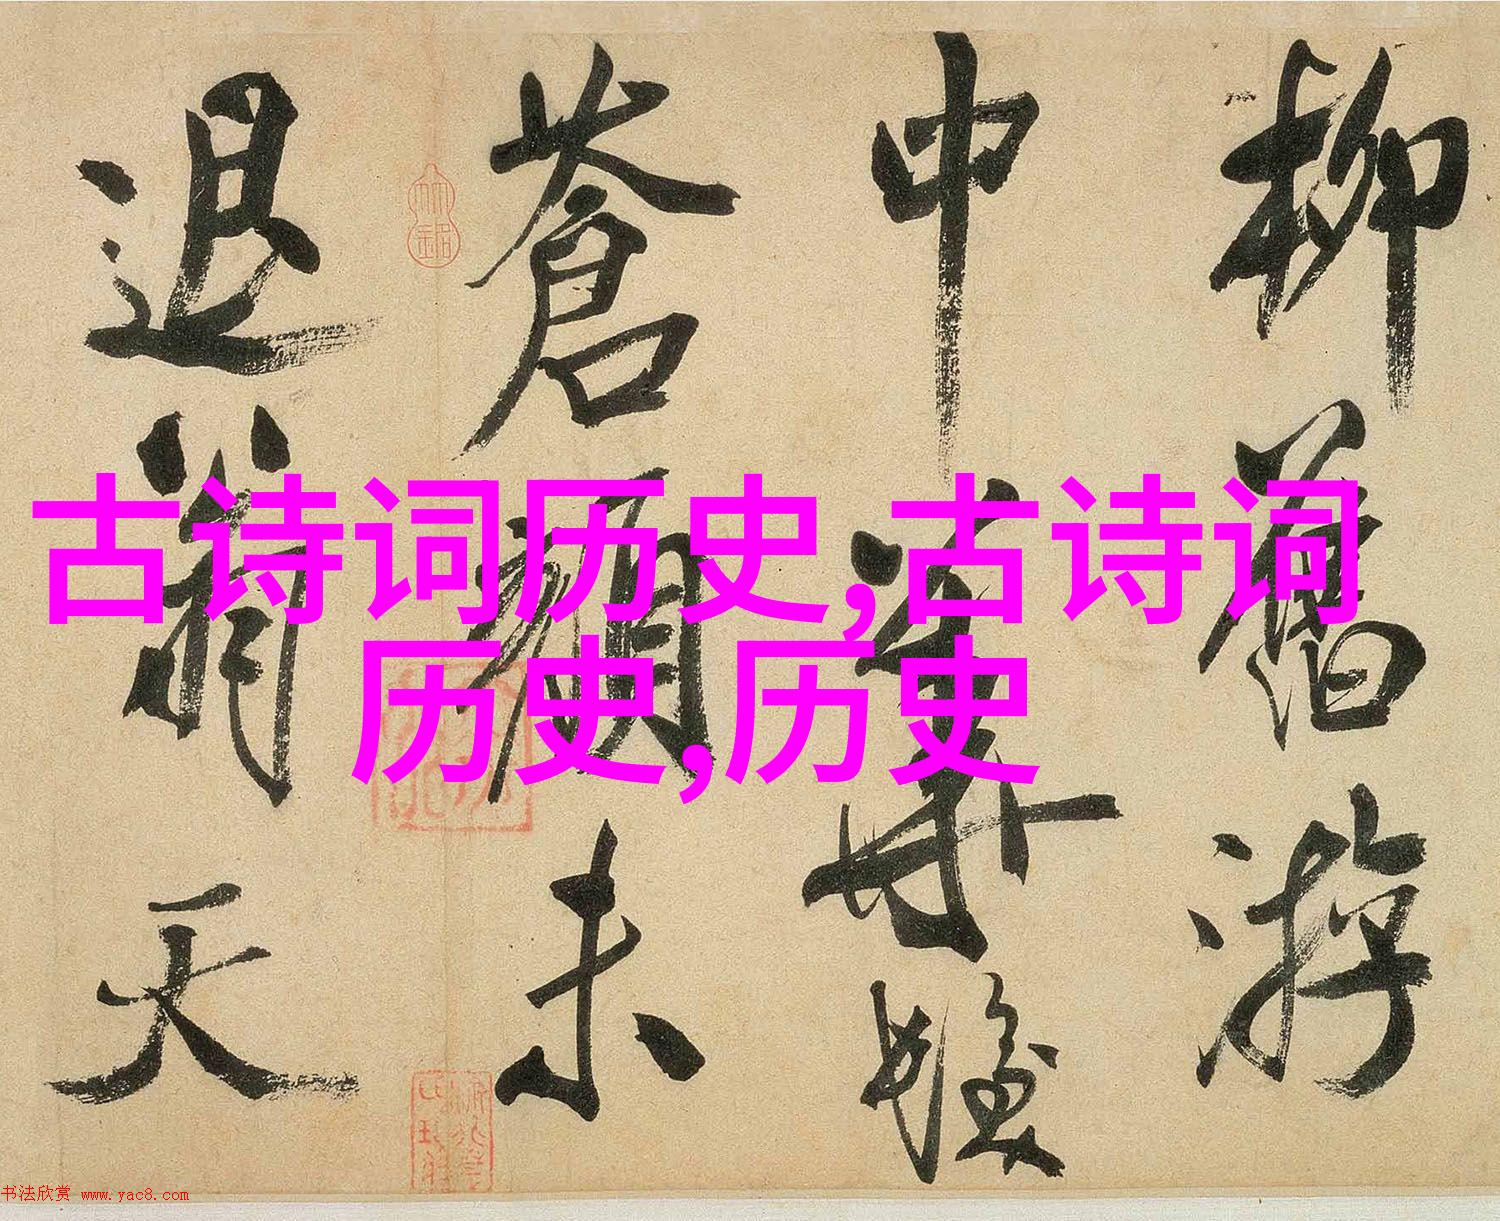 柳舊游
中華
蒼顏未
退翁天
古诗词历史,古诗词
历史,历史
书法欣赏 www.yac8.com